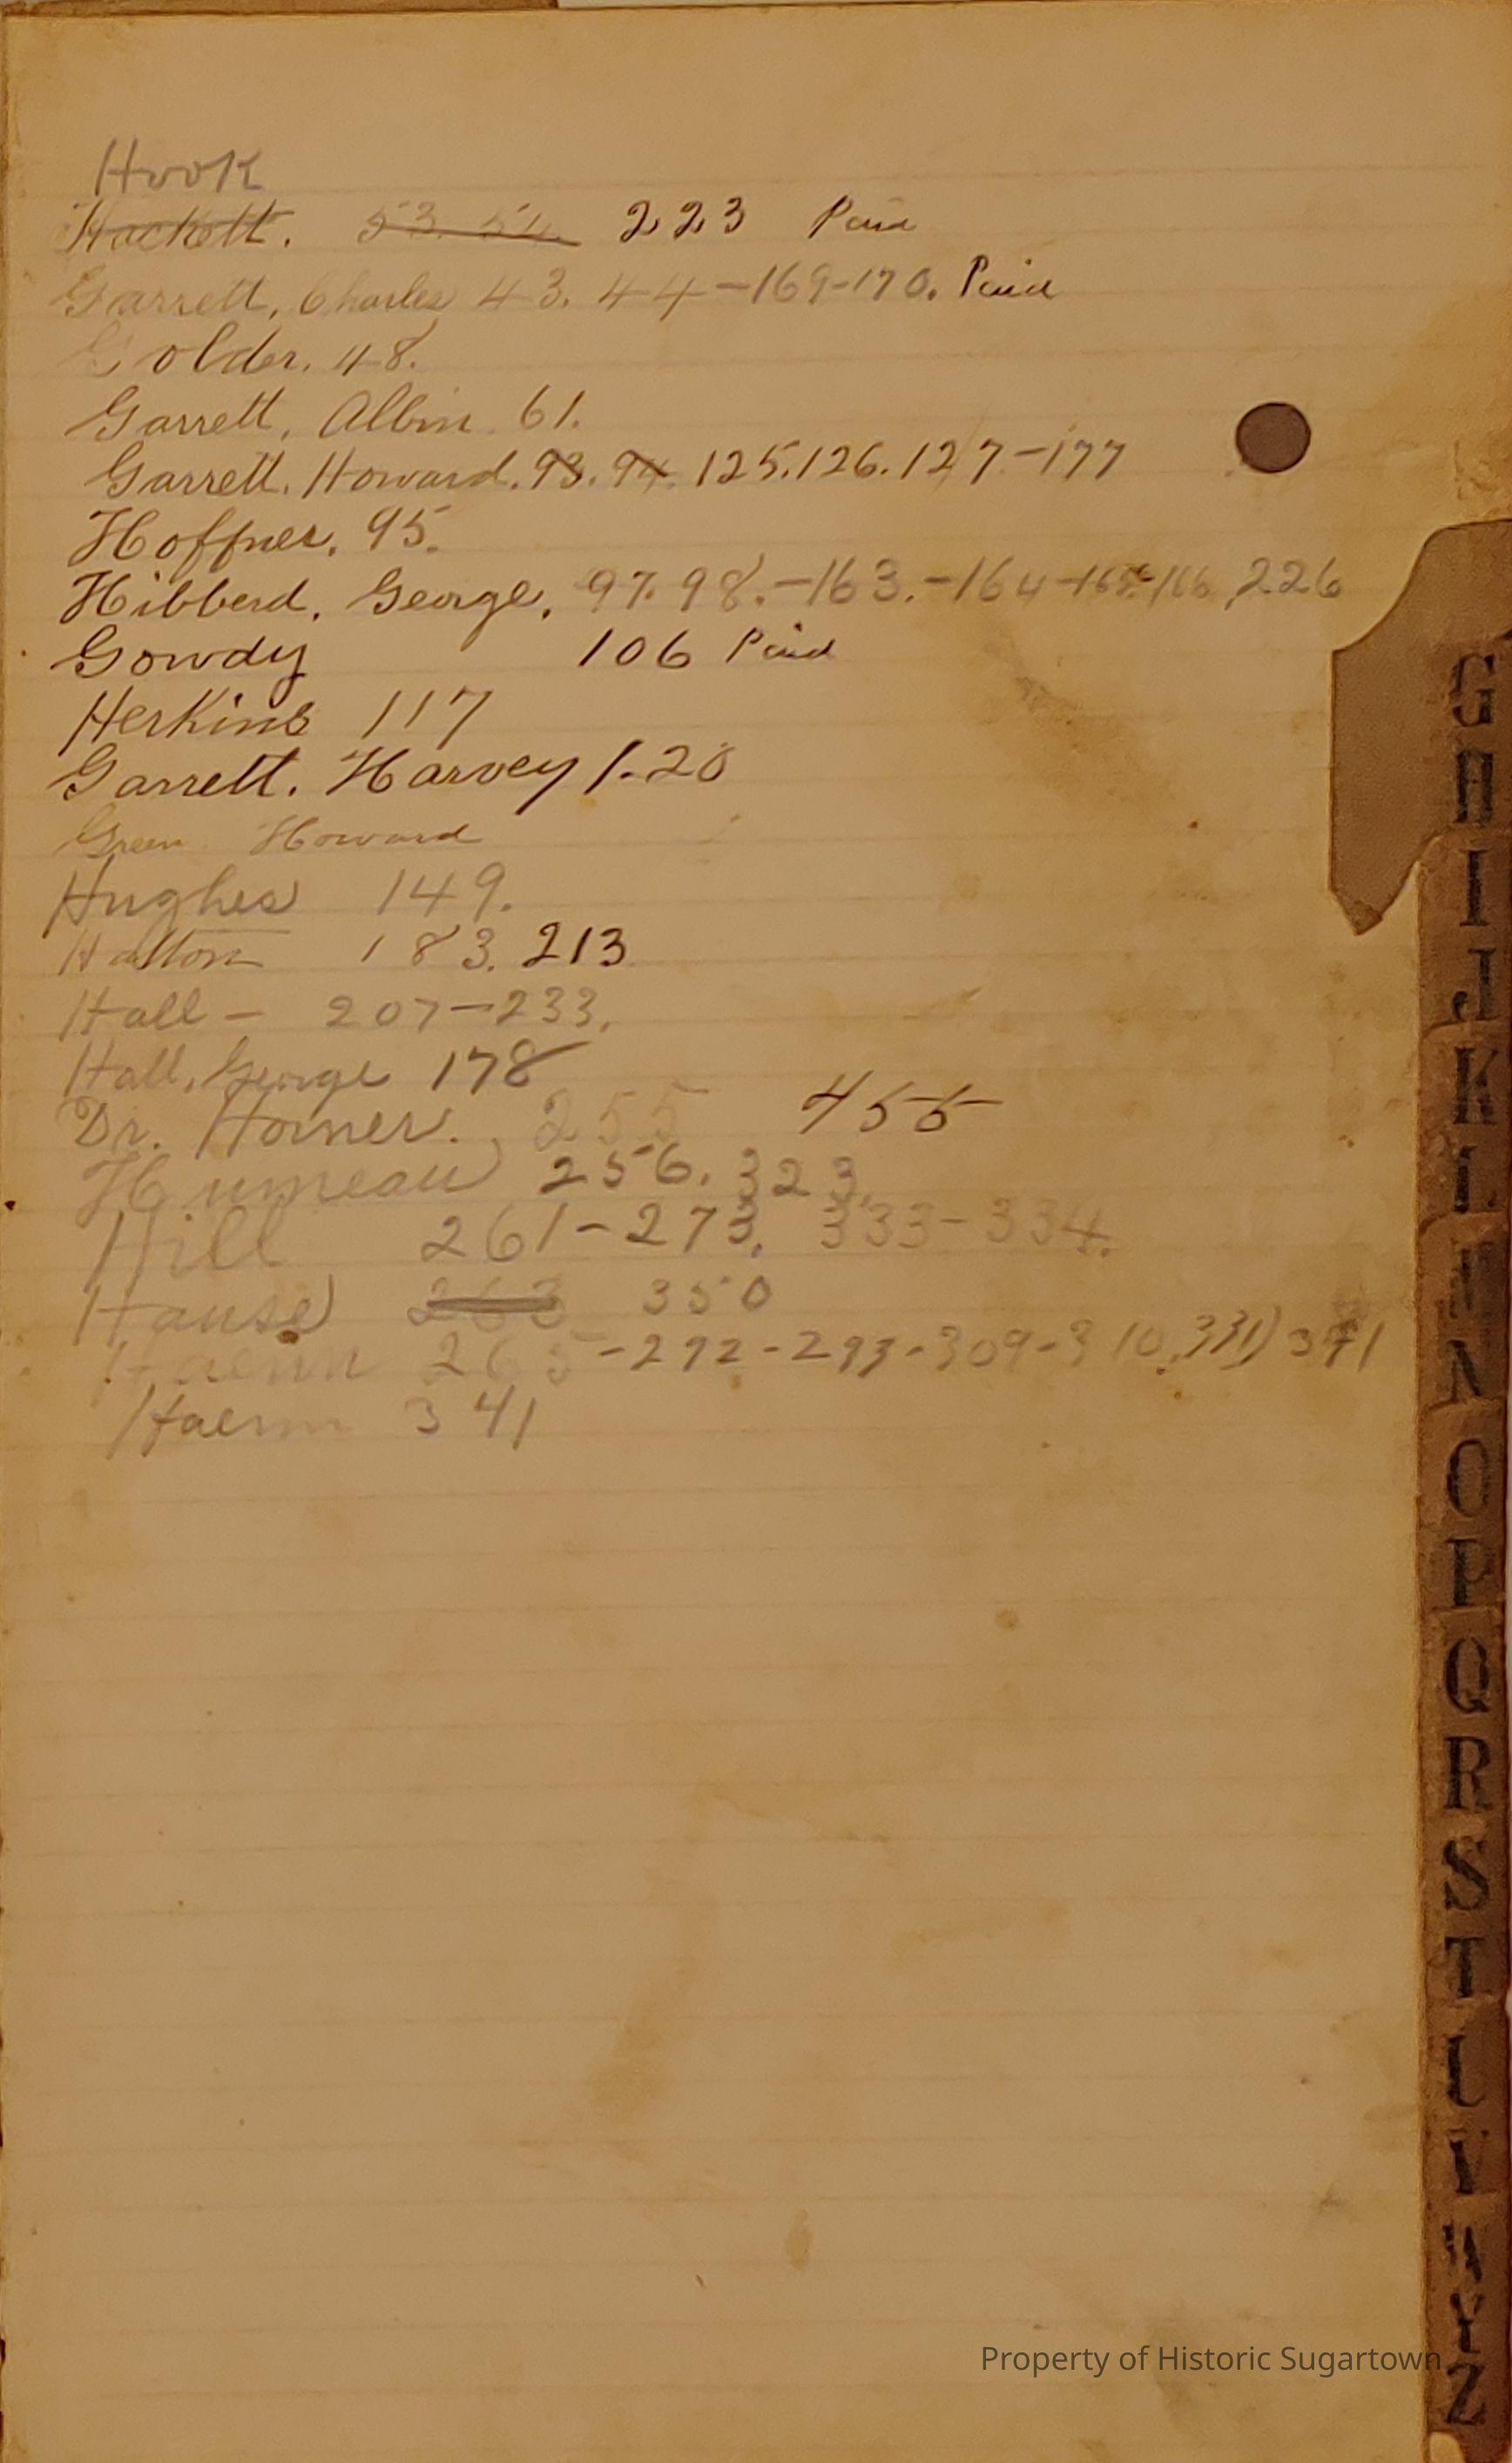 Hook
Hackett. 53. 54. 223 Paid
Garrett, Charles 43. 44-169-170. Paid
Golder. 48.
Garrett, Albin. 61.
Garrett. Howard. 93. 94. 125. 126. 127-177
Hoffner. 95.
Hibberd, George, 97. 98.-163.-164-165-166, 226
Gowdy 106 Paid
Herkins 117
Garrett. Harvey 1.20
Green Howard
Hughes 149.
Hatton 183. 213
Hall - 207-233.
Hall, George 178
Dr. Horner. 255 455
Humeau 256. 323.
Hill 261-273. 333-334.
Hause 263 350
265-292-293-309-310, 331) 341
341
G
H
I
J
K
L
M
N
O
P
Q
R
S
T
U
V
W
Y
Z
Property of Historic Sugartown